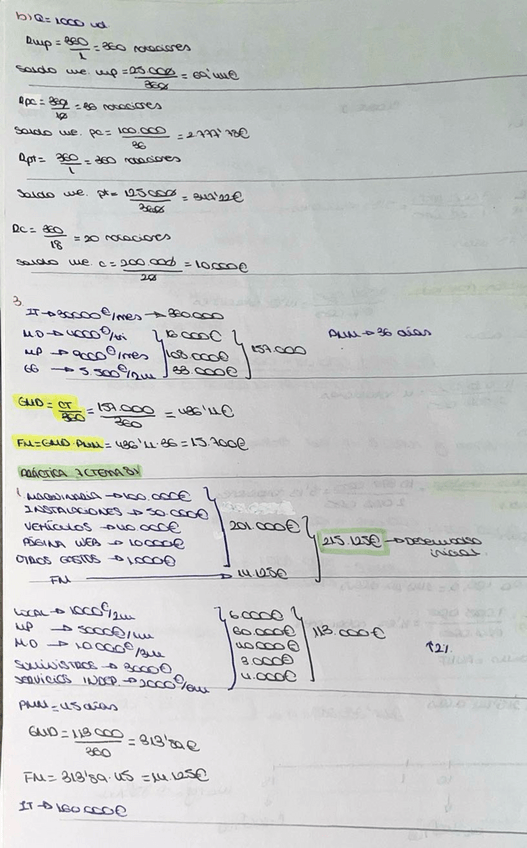 b) Q = 1000 ud
Rmp = 360/1 = 360 rotaciones
Saldo me. mp = 25.000/360 = 69'44€
Rpc = 360/10 = 36 rotaciones
Saldo me. pc = 100.000/36 = 2777'78€
Rpt = 360/1 = 360 rotaciones
Saldo me. pt = 125.000/360 = 347'22€
Rc = 360/18 = 20 rotaciones
Saldo me. c = 200.000/20 = 10.000€
3.
IT → 30000€/mes → 360.000
MO → 4000€/tri 16.000€
MP → 9000€/mes 108.000€ 157.000 PMM → 36 días
GG → 5.500€/2m 33.000€
GMD = CT/360 = 157.000/360 = 436'11€
FM = GMD · PMM = 436'11 · 36 = 15.700€
PRÁCTICA 3 (TEMA 8)
1. MAQUINARIA → 100.000€
INSTALACIONES → 50.000€
VEHÍCULOS → 40.000€ 201.000€
PÁGINA WEB → 10.000€ 215.125€ → Desembolso inicial
OTROS GASTOS → 1.000€
FM → 14.125€
LOCAL → 1000€/2m 6.000€
MP → 5000€/1m 60.000€ 113.000€
MO → 10.000€/3m 40.000€ ↑2%
SUMINISTROS → 3000€ 3.000€
SERVICIOS INDEP → 2000€/6m 4.000€
PMM = 45 días
GMD = 113.000/360 = 313'89€
FM = 313'89 · 45 = 14.125€
IT → 160.000€